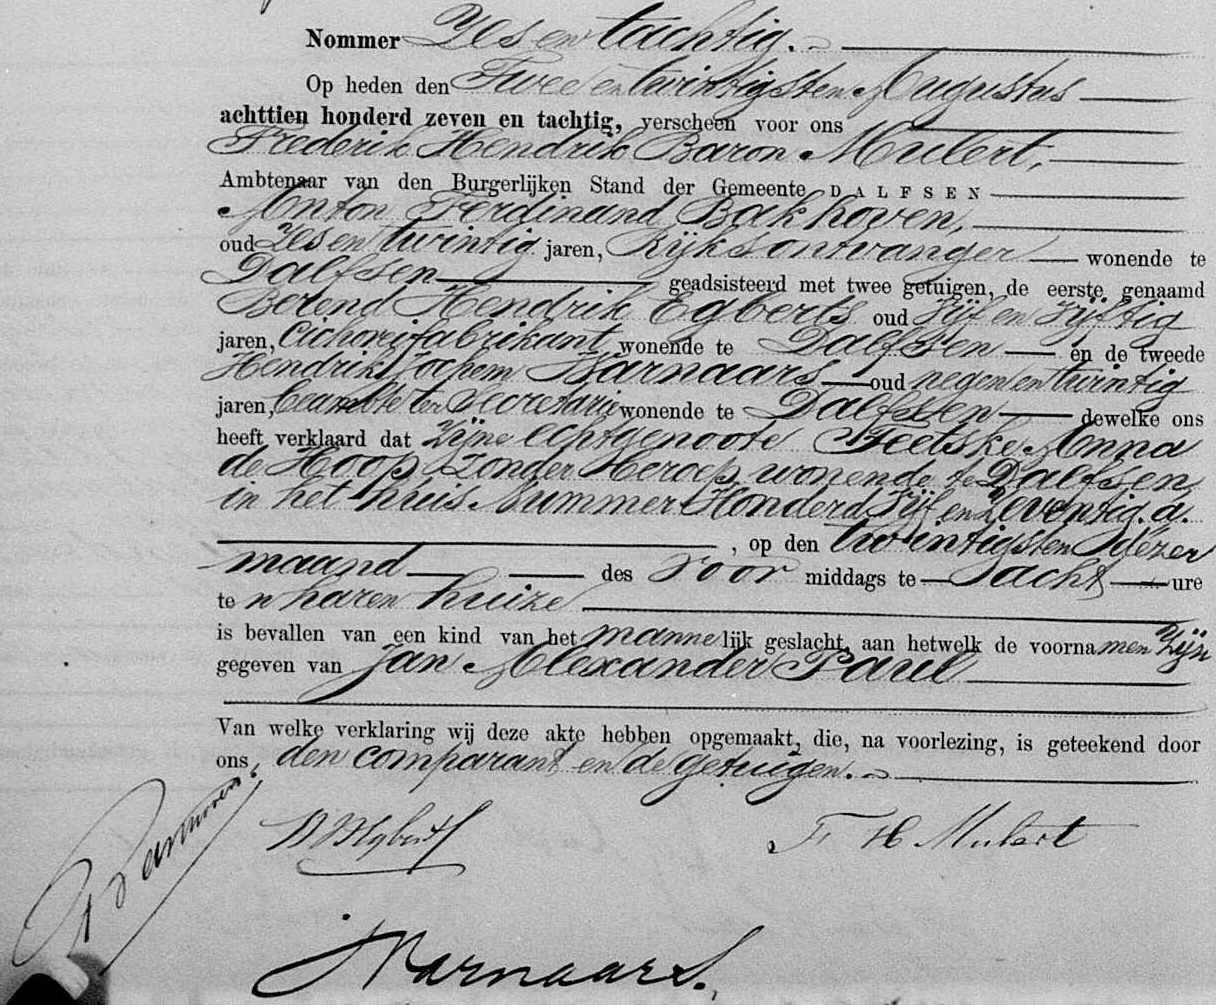 Nommer Zes en tachtig.
Op heden den Twee en twintigsten Augustus
achttien honderd zeven en tachtig, verscheen voor ons
Frederik Hendrik Baron Mulert,
Ambtenaar van den Burgerlijken Stand der Gemeente DALFSEN
Anton Ferdinand Bakhoven,
oud Zes en twintig jaren, Rijksontvanger wonende te
Dalfsen geadsisteerd met twee getuigen, de eerste genaamd
Berend Hendrik Egberts oud Vijf en Vijftig
jaren, Cichoreifabrikant wonende te Dalfsen en de tweede
Hendrik Jochem Barnaars oud negen en twintig
jaren, beambte ter Secretarie wonende te Dalfsen dewelke ons
heeft verklaard dat Zijne echtgenoote Feetske Anna
de Hoop Zonder Beroep, wonende te Dalfsen
in het huis Nummer Honderd Vijf en Zeventig. a.
, op den twintigsten dezer
maand des voor middags te acht ure
te n haren huize
is bevallen van een kind van het mannelijk geslacht, aan hetwelk de voornamen Zijn
gegeven van Jan Alexander Paul
Van welke verklaring wij deze akte hebben opgemaakt, die, na voorlezing, is geteekend door
ons, den comparant en de getuigen.
BHEgberts F H Mulert
Barnaars.